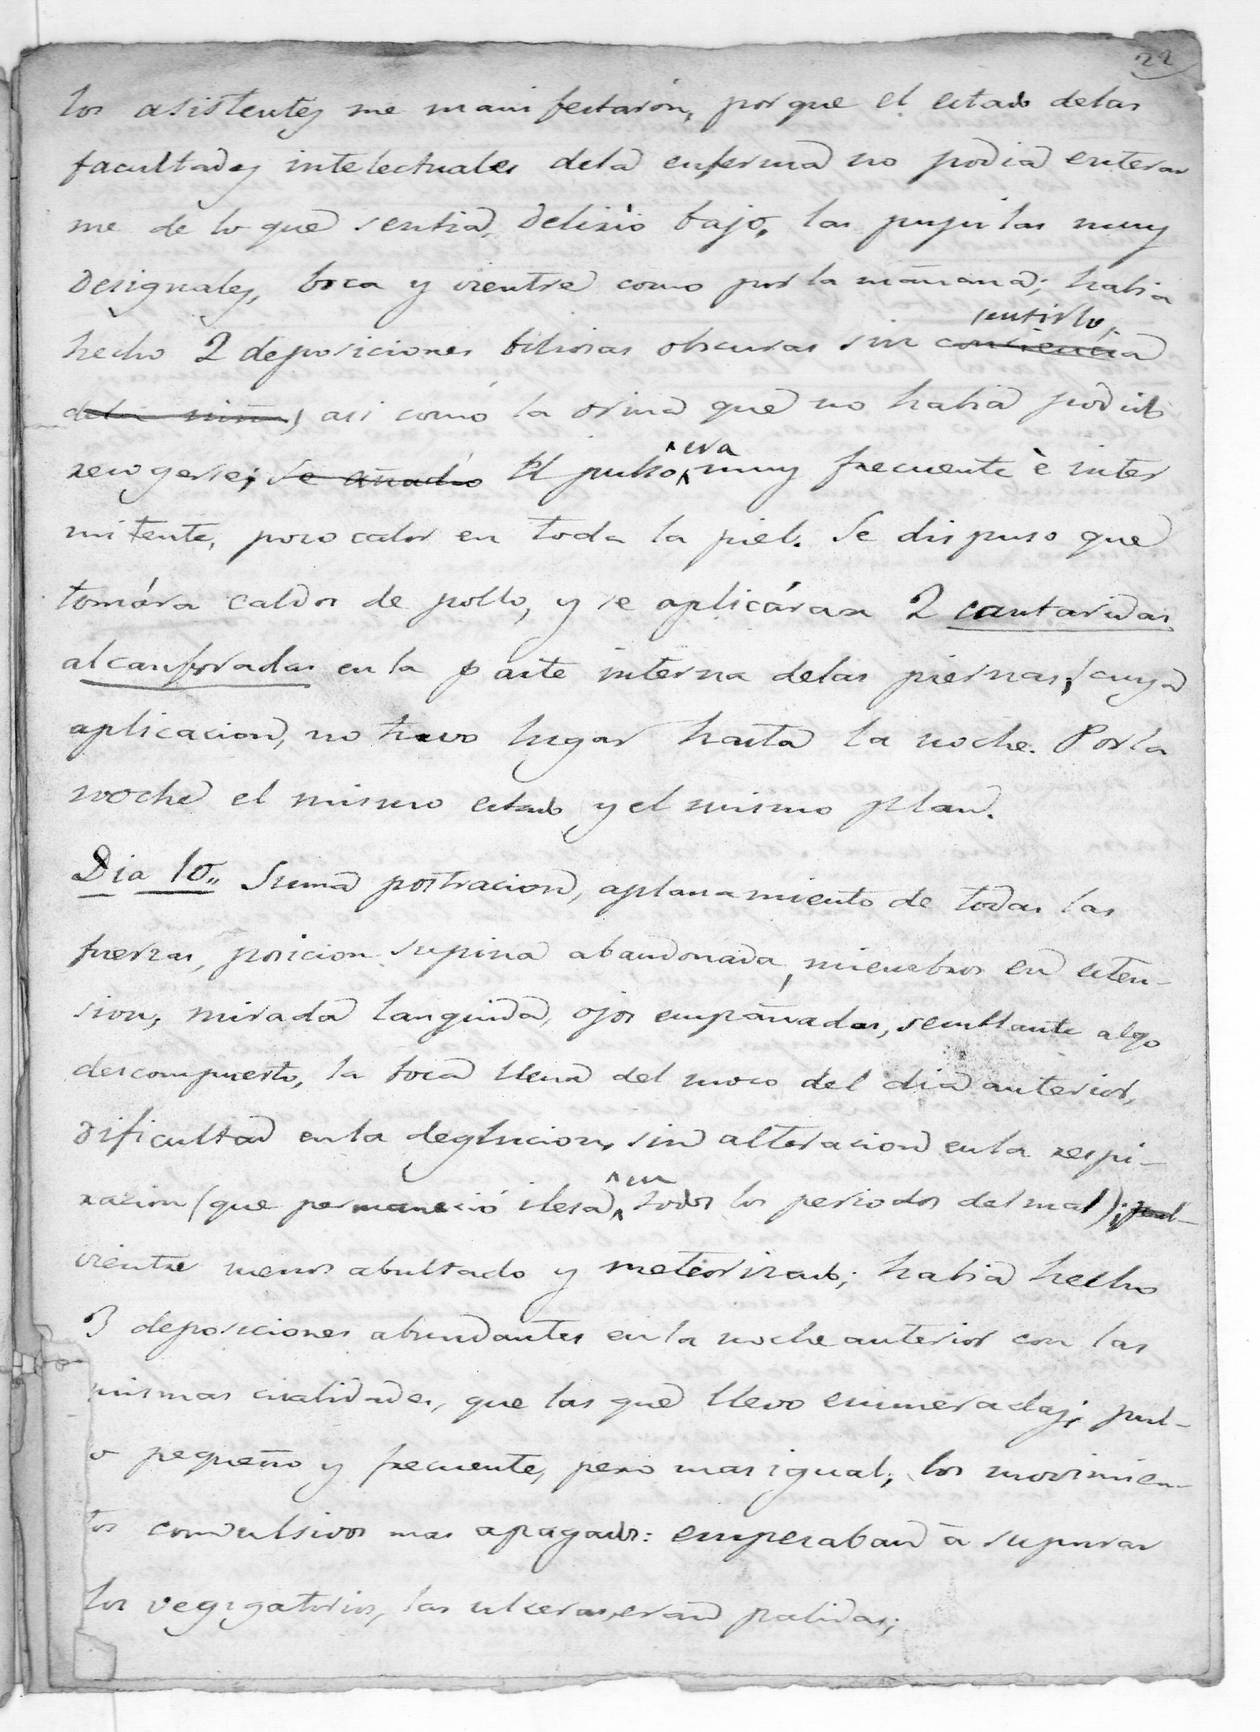 22
los asistentes me manifestarón, porque el estado delas
facultades intelectuales dela enferma no podia enterar
me de lo que sentia, Delirio bajo, las pupilas muy
desiguales, boca y vientre como por la mañana; habia
sentirlo,
hecho 2 deposiciones biliosas obscuras sin conciencia
dela niña, asi como la orina que no habia podido
era
recogerse; se añadio El pulso muy frecuente è inter
mitente, poco calor en toda la piel. Se dispuso que
tomára caldos de pollo, y se aplicáran 2 cantaridas
alcanforadas en la parte interna delas piernas, cuya
aplicacion, no tuvo lugar hasta la noche. Por la
noche el mismo estado y el mismo plan.
Dia 10,, Suma postracion, aplanamiento de todas las
fuerzas, posicion supina abandonada, miembros en esten-
sion, mirada languida, ojos empañados, semblante algo
descompuesto, la boca llena del moco del dia anterior,
dificultad en la deglucion, sin alteracion en la respi-
en
racion (que permaneció ilesa todos los periodos del mal); pul-
vientre menos abultado y meteorizado; habia hecho
3 deposiciones abundantes en la noche anterior con las
mismas cualidades, que las que llevo enumeradas; pul-
o pequeño y frecuente, pero mas igual; los movimien-
tos convulsivos mas apagados: empezaban à supurar
los vegigatorios, las ulceras eran palidas;